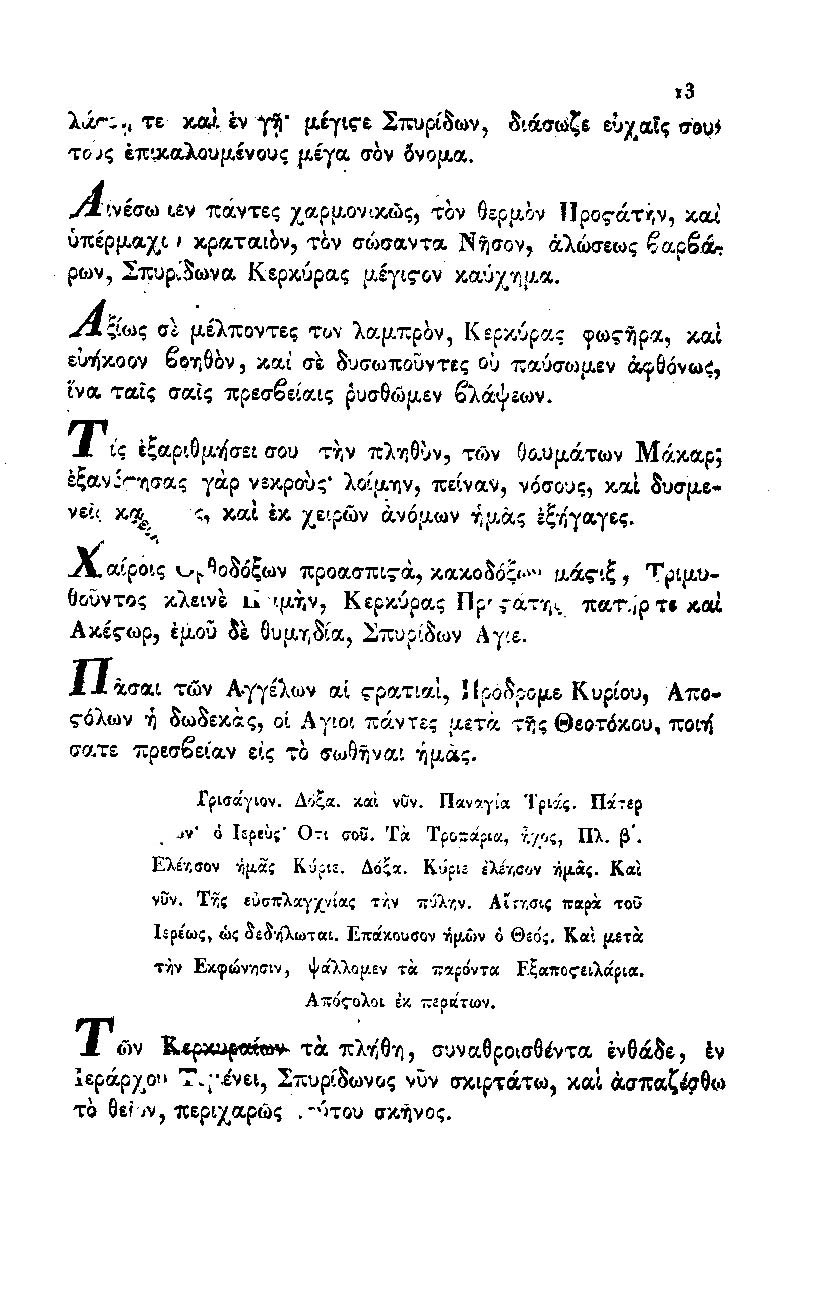 13
τε καὶ ἐν γῇ· μέγιϛε Σπυρίδων, διάσωζε εὐχαῖς σου,
τοὺς ἐπικαλουμένους μέγα σὸν ὄνομα.
Αἰνέσωμεν πάντες χαρμονικῶς, τὸν θερμὸν Προϛάτην, καὶ
ὑπέρμαχον κραταιὸν, τὸν σώσαντα Νῆσον, ἁλώσεως βαρβά-
ρων, Σπυρίδωνα Κερκύρας μέγιϛον καύχημα.
Ἀξίως σὲ μέλποντες τὸν λαμπρὸν, Κερκύρας φωϛῆρα, καὶ
εὐήκοον βοηθὸν, καὶ σὲ δυσωποῦντες οὐ παύσωμεν ἀφθόνως,
ἵνα ταῖς σαῖς πρεσβείαις ῥυσθῶμεν βλάψεων.
Τίς ἐξαριθμήσει σου τὴν πληθὺν, τῶν θαυμάτων Μάκαρ;
ἐξανέϛησας γὰρ νεκροὺς· λοίμην, πείναν, νόσους, καὶ δυσμε-
νεῖς καὶ ἐκ χειρῶν ἀνόμων ἡμᾶς ἐξήγαγες.
Χαίροις Ορθοδόξων προασπιϛὰ, κακοδόξων μάϛιξ, Τριμυ-
θοῦντος κλεινὲ Ποιμὴν, Κερκύρας Προϛάτης πατήρ τε καὶ
Ακέϛωρ, ἐμοῦ δὲ θυμηδία, Σπυρίδων Αγιε.
Πᾶσαι τῶν Αγγέλων αἱ ϛρατιαὶ, Πρόδρομε Κυρίου, Απο-
ϛόλων ἡ δωδεκὰς, οἱ Αγιοι πάντες μετὰ τῆς Θεοτόκου, ποιή
σατε πρεσβείαν εἰς τὸ σωθῆναι ἡμᾶς.
Τρισάγιον. Δόξα. καὶ νῦν. Παναγία Τριάς. Πάτερ
ὁ Ιερεὺς· Οτι σοῦ. Τὰ Τροπάρια, ἦχος, Πλ. β΄.
Ελέησον ἡμᾶς Κύριε. Δόξα. Κύριε ἐλέησον ἡμᾶς. Καὶ
νῦν. Τῆς εὐσπλαγχνίας τὴν πύλην. Αἴτησις παρὰ τοῦ
Ιερέως, ὡς δεδήλωται. Επάκουσον ἡμῶν ὁ Θεός. Καὶ μετὰ
τὴν Εκφώνησιν, ψάλλομεν τὰ παρόντα Εξαποϛειλάρια.
Απόϛολοι ἐκ περάτων.
Τῶν Κερκυραίων τὰ πλήθη, συναθροισθέντα ἐνθάδε, ἐν
Ιεράρχου Τεμένει, Σπυρίδωνος νῦν σκιρτάτω, καὶ ἀσπαζέσθω
τὸ θεῖον, περιχαρῶς τούτου σκῆνος.